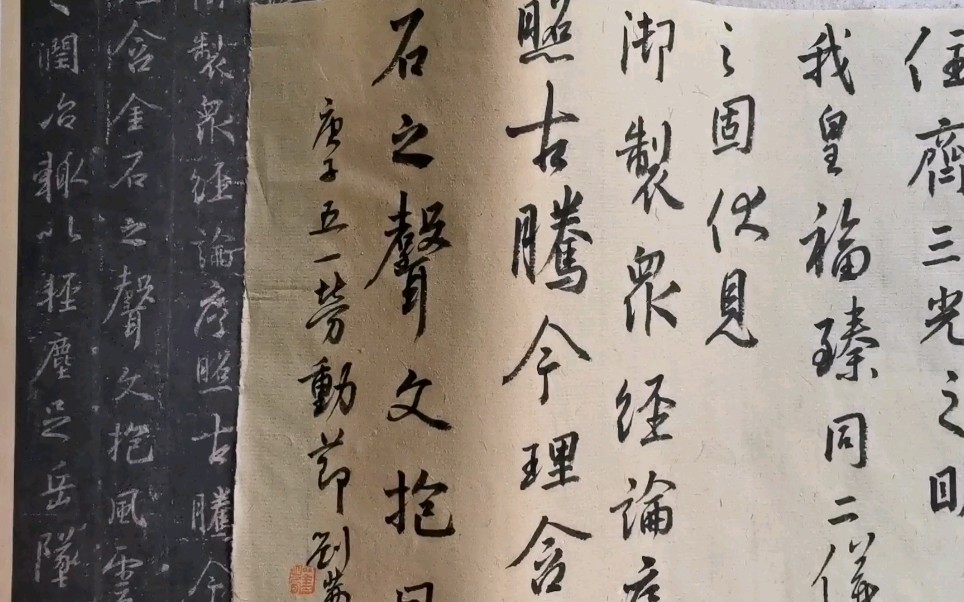 住齊三光之明
我皇福臻同二儀
之固伏見
御製衆經論序
照古騰今理含
石之聲文抱風
庚子五一勞動節劉
製衆經論序照古騰今
含金石之聲文抱風雲
之潤治輒以輕塵足岳墜